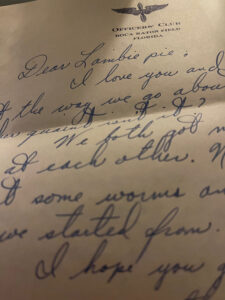 OFFICERS' CLUB
BOCA RATON FIELD
FLORIDA
Dear Lambie pie;
I love you and
the way we go abou
isn't it?
We both got m
at each other. N
some worms an
we started from.
I hope you g